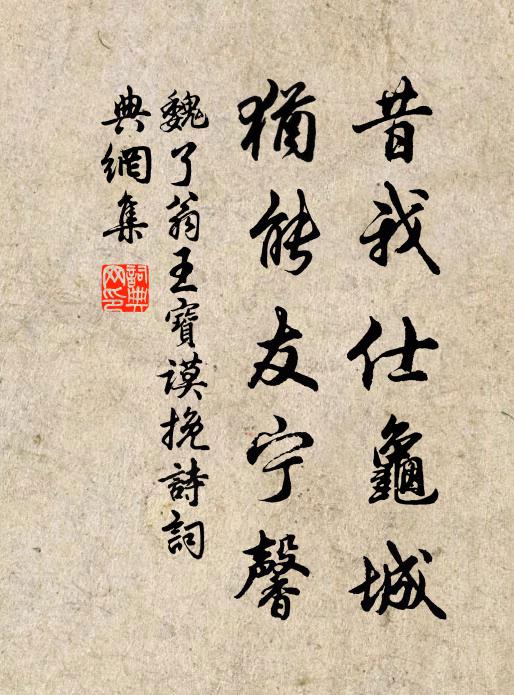 昔我仕龜城
猶能友宁馨
魏了翁王寶謨挽詩詞
典網集
詞典網印